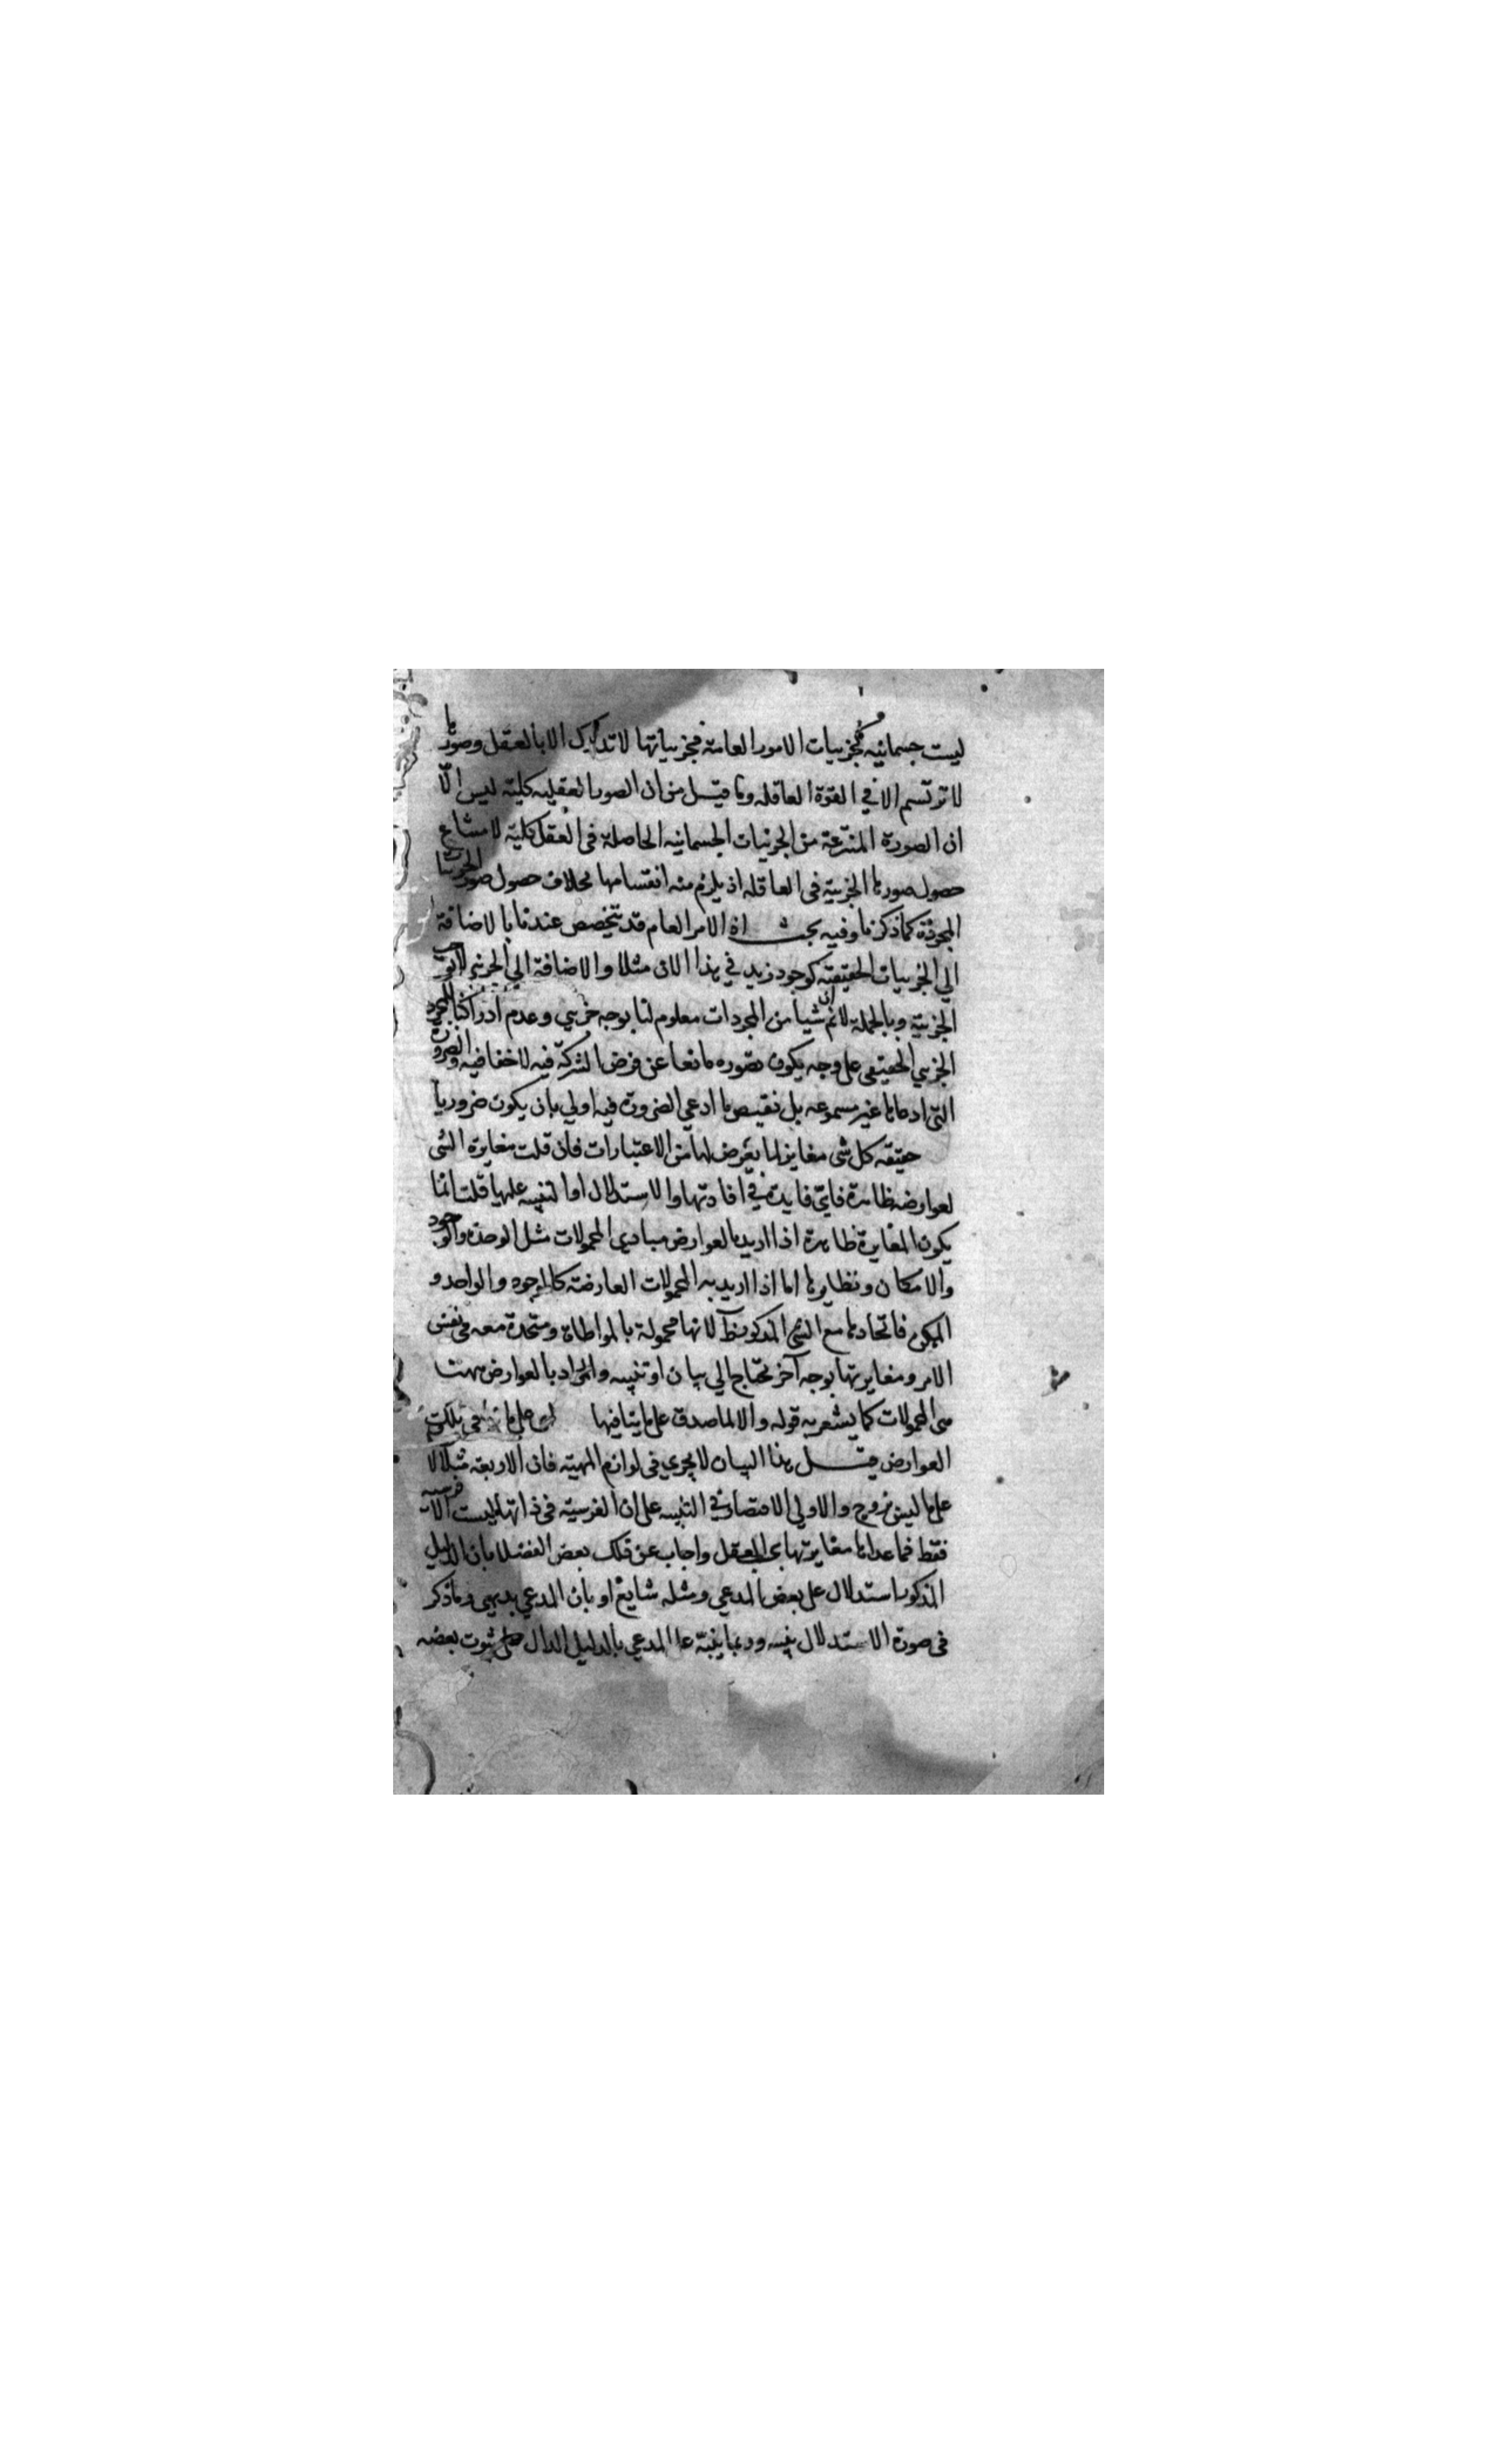 ليست جسمانيه كجزييات الامور العامة فجزيياتها لا تدرك الا بالعقل وصورها
لا ترتسم الا في القوة العاقله وما قيل من ان الصور العقليه كليته ليس الا
ان الصورة المنتزعة من الجزئيات الجسمانيه الحاصلة في العقل كلية لامتناع
حصول صورها الجزيية في العاقله اذ يلزم منه انقسامها بخلاف حصول صور الجزييات
المجردة كما ذكرنا وفيه بحث اذ الامر العام قد يتخصص عندنا بالاضافة
الي الجزييات الحقيقيه كوجود زيد في هذا الان مثلا والاضافة الي الجزيي لا توجب
الجزيية وبالجملة لانم ان شيا من المجردات معلوم لنا بوجه جزيي وعدم ادراكنا المجرد
الجزيي الحقيقي على وجه يكون تصوره مانعا عن فرض الشركة فيه لا خفا فيه والضرورة
التي ادعاها غير مسموعه بل نقيض ما ادعي الضرورة فيه اولي بان يكون ضروريا
حقيقه كل شي مغايرة لما يعرض لها من الاعتبارات فان قلت مغايرة الشي
لعوارضه ظاهرة فاي فايدة في افادتها والاستدلال او التنبيه عليها قلت انما
يكون المغايرة ظاهرة اذا اريد بالعوارض مبادي المحمولات مثل الوحدة والوجود
والامكان ونظايرها اما اذا اريد به المحمولات العارضة كالموجود والواحد و
الممكن فاتحادها مع الشي المذكور ظ لانها محمولة بالمواطاة ومتحدة معه في نفس
الامر ومغايرتها بوجه آخر يحتاج الي بيان او تنبيه والمراد بالعوارض ههنا
هي المحمولات كما يشعر به قوله والا لما صدق على ما ينافيها
العوارض قيل هذا البيان لا يجري في لوازم المهية فان الاربعة مثلا لا
على ما ليس بزوج والاولي الاقتصار في التنبيه على ان الفرسية في ذاتها ليست الا فرسية
فقط فما عداها مغايرتها بحسب العقل واجاب عن ذلك بعض الفضلا بان الدليل
المذكور استدلال على بعض المدعي ومثله شايع او بان المدعي بديهي وما ذكر
في صورة الاستدلال تنبيه وربما ينبه على المدعي بالدليل الدال على ثبوت بعضه